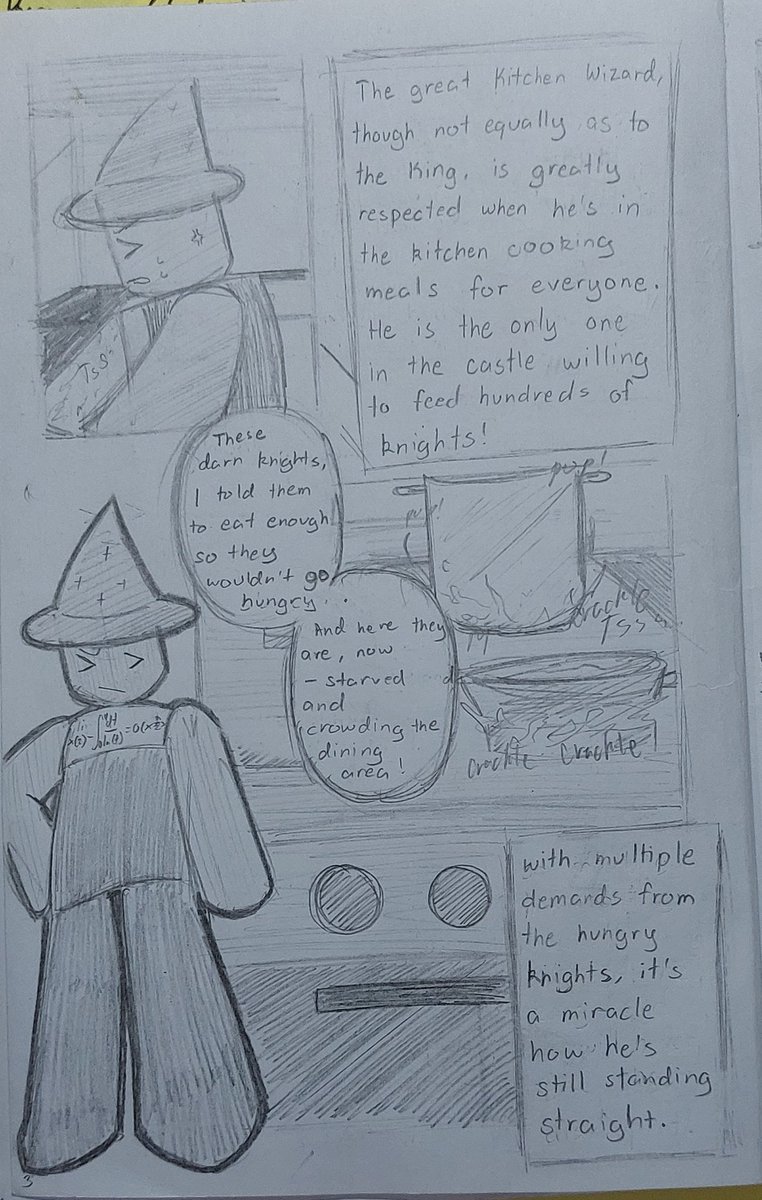 The great Kitchen Wizard,
though not equally as to
the King, is greatly
respected when he's in
the kitchen cooking
meals for everyone.
He is the only one
in the castle willing
to feed hundreds of
knights!
Tss
These
darn knights,
I told them
to eat enough
so they
wouldn't go
hungry...
pop!
crackle
Tss
And here they
are, now
- starved
and
crowding the
dining
area!
crackle crackle
with multiple
demands from
the hungry
knights, it's
a miracle
how he's
still standing
straight.
3